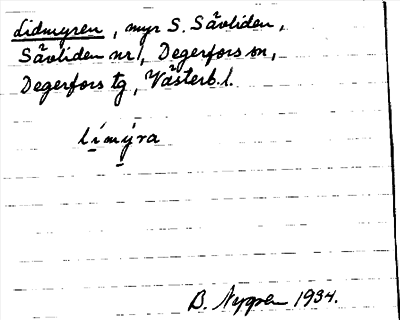 Lidmyren, myr S. Sävliden,
Sävliden nr 1, Degerfors sn,
Degerfors tg, Västerb. l.
límýra
B. Nygren 1934.